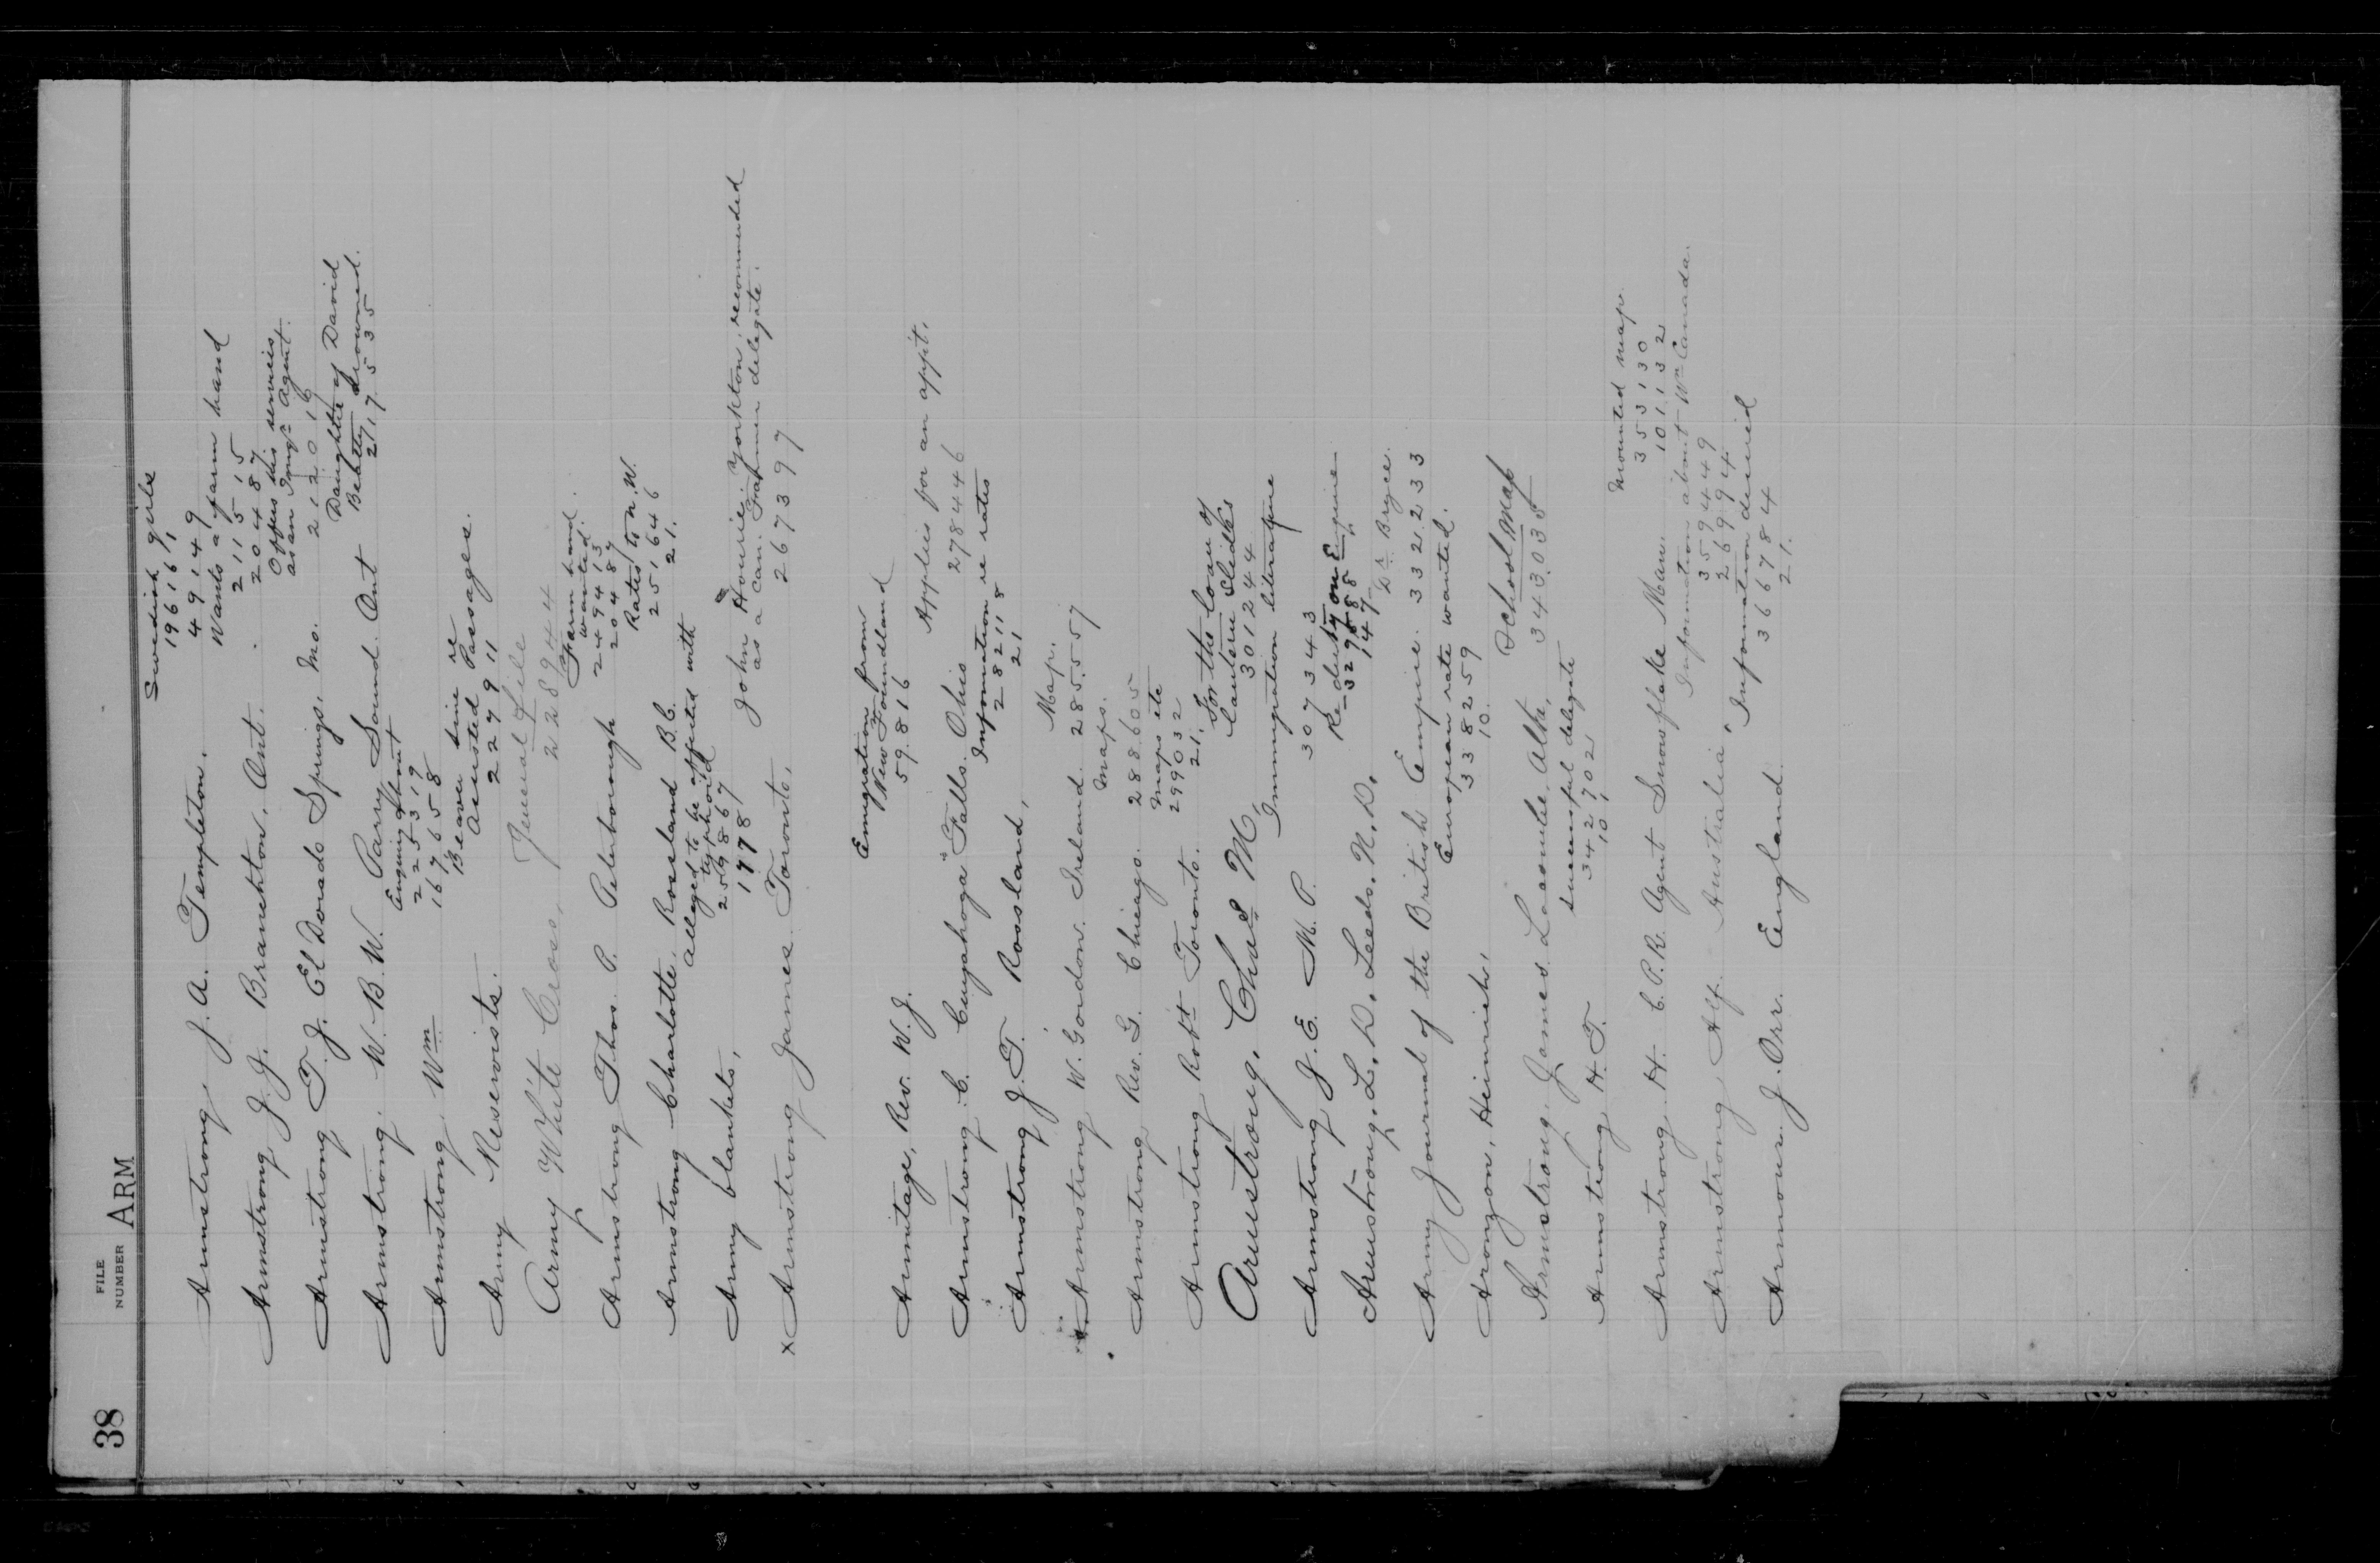 38
FILE
NUMBER
ARM
Swedish girls
196161
49149
Armstrong J. A. Templeton.
Wants a farm hand
211515
20487
Armstrong J. J. Branchton, Ont.
Offers his services
as an Imgt Agent.
Armstrong T. J. El Dorado Springs, Mo. 212016
Daughter of David
Beatty drowned.
Armstrong. W. B. W. Parry Sound. Ont 217535
Enquiry about
225319
Armstrong Wm 167658
Beaver Line re
Assisted Passages.
Army Reservists. 227911
Army White Cross, General file 228944
Farm hand
wanted.
249413
Armstrong Thos. P. Peterborough 20487
Rates to N.W.
251646
21.
Armstrong Charlotte, Rossland B.C.
alleged to be infected with
typhoid
259867
Army blankets, 17781
John Hourie, Yorkton, recommended
as a Can. Farmer delegate.
x Armstrong James. Toronto, 267397
Emigration from
New Foundland
Armitage, Rev. W. J. 59.816
Applies for an appt.
Armstrong. C. Cuyahoga "Falls. Ohio 278446
Information re rates
282118
Armstrong J. T. Rossland, 21
Map.
Armstrong W. Gordon. Ireland. 285557
Maps.
Armstrong Rev. G. Chicago. 288605
Maps etc
299032
Armstrong Robt Toronto. 21,
For the loan of
lantern slides
Armstrong, Chas M, 301244
Immigration literature
Armstrong J. E. M. P. 307343
Re duty on Empire
329588
Armstrong, L. D. Leeds. N. D. 147
Dr Bryce.
Army Journal of the British Empire. 332233
European rate wanted.
338259
Aronzon, Heinrich, 10.
School Map
Armstrong, James Lacombe, Alta, 343035
Successful delegate
342702
Armstrong H. T. 10,
Mounted map.
353130
Armstrong. H. C.P.R. Agent Snowflake Man. 101132
Information about Wn Canada.
359449
Armstrong Alf. Australia, 26994
Information desired
366784
Armour. J. Orr. England. 21.